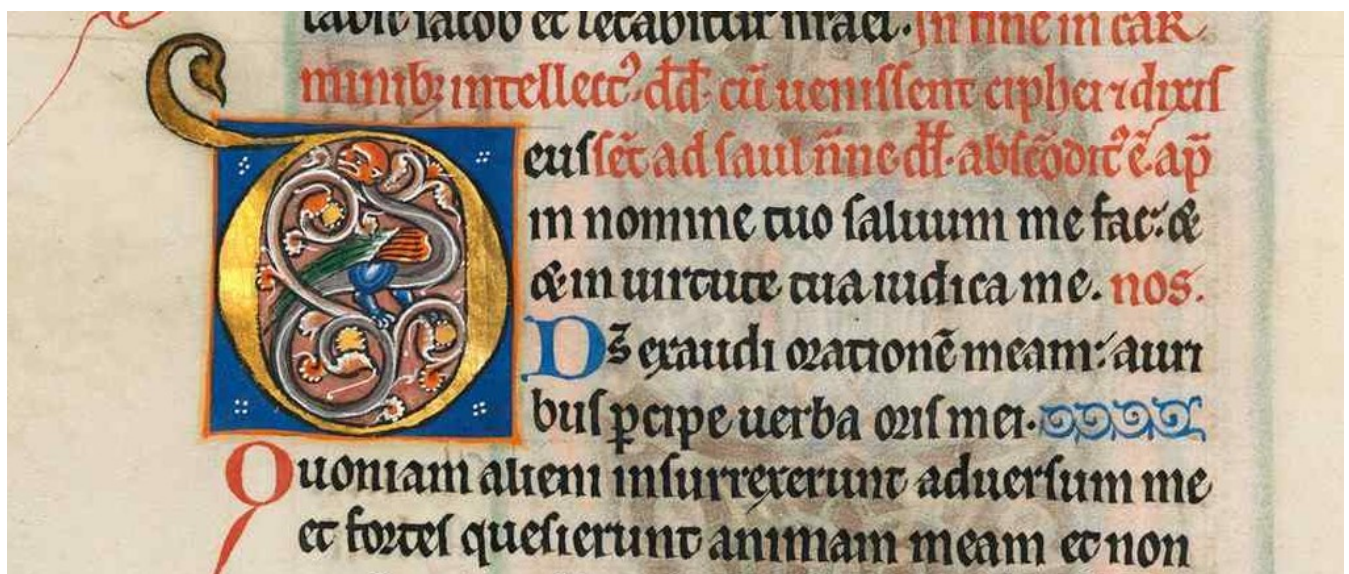 tabit iacob et letabitur israel. In fine in car
minib; intellect᾽. dd̄. cū uenissent ciphei ⁊ dixis
eus sēt ad saul nn̄e dd̄. abscōdit᾽ ē ap̄
in nomine tuo saluum me fac: &
& in uirtute tua iudica me. nos.
Ds̄ exaudi orationē meam: auri
bus p̱cipe uerba oris mei.
Quoniam alieni insurrexerunt aduersum me
et fortes quesierunt animam meam et non